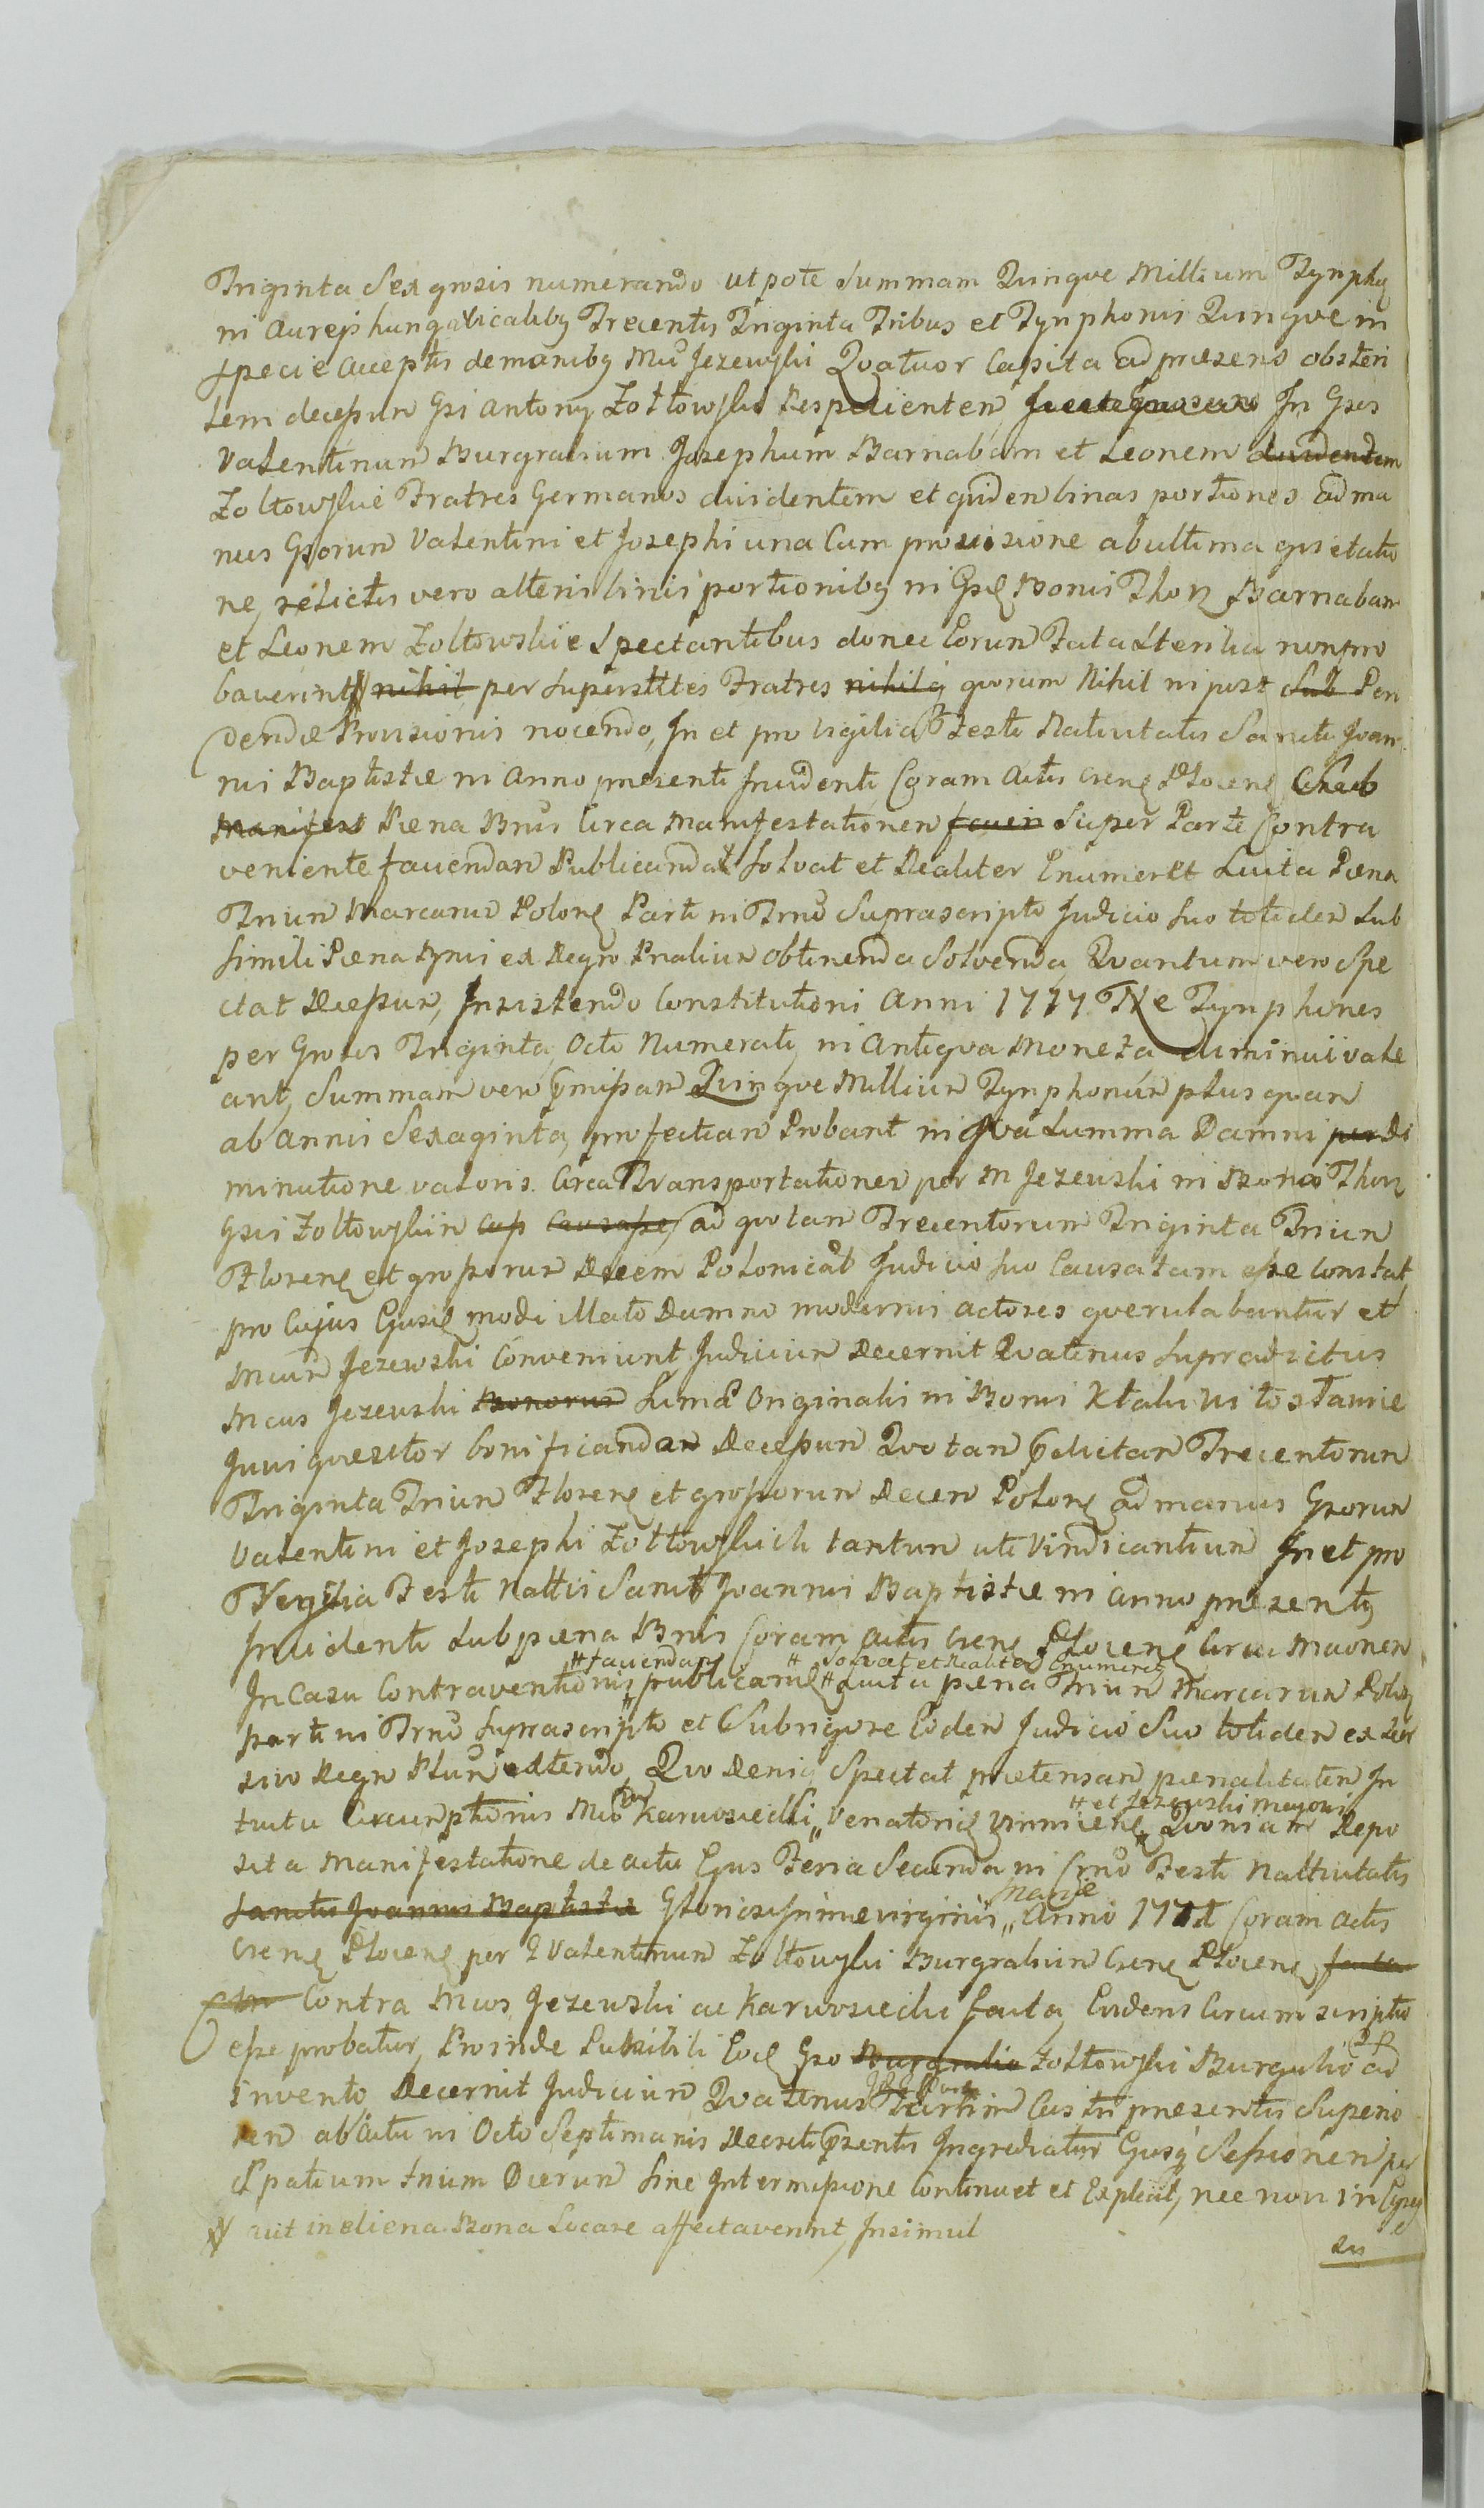 Triginta Sex grosis numerando utpote Summam Quinque Millium Tynpho
ni aureis hungaricalibg Trecentis Triginta Tribus et Tynphonis Quinque in
specie acceptis de manibg Mci Jezewski Quatuor Capita ad præsens obsteri
tem decessum Gsi Antony Zołtowski Respicientem In Gsos
Valentinum Burgrabium Josephum Barnabam et Leonem dividentem
Zołtowskie Fratres Germanos dividentem et quidem binas portiones ad ma
nus Gsorum Valentini et Josephi una Cum provisione ab ultima quietatio
ne, relictis vero alteris binis portionibg in Bonis Thor Barnabam
et Leonem Zołtowskie Spectantibus donec Eorum Fata Sterilia non pro
baverint nihil per Superstites Fratres nihilq quorum Nihil in post Sub Pen
dendæ Provisionis nocendo, In et pro Vigilia Festi Nativitatis Sancti Joan
nis Baptistæ in Anno præsenti Incidenti Coram Actis Csene Plocens
Manifest Pæna Bnis Circa Manifestationem favien Super Parte Contra
veniente faciendam Publicanda Solvat et Realiter Enumeret Luita Pæna
Trium Marcarum Polon Parti in Trno Suprascripto Judicio Suo totidem Sub
Simili Pæna Bnis ex Regno Pnalium obtinenda Solvenda, Quantum vero Spe
ctat Decessum, Insistendo Constitutioni Anni 1777 Ne Tynphones
per Grosis Triginta Octo Numerati, in Antiqua Moneta diminui vale
ant, Summam vero pmissam Quinque Millium Tynphonum plus quam
ab annis Sexaginta, profectiam Probant in qva Summa Damni per Di
minutione valoris Circa Transportationem per M Jezewski in Bonis Thor
Gsis Zołtowskim cap ad quotam Trecentorum Triginta Trium
Floren et grossorum Decem Polonical Judicio Suo Causatam esse Constat,
pro Cujus Ejus modi illato Damno moderni actores querulabantur et
Mcum Jezewski Conveniunt Judicium Decernit Quatenus Supradictus
Mcus Jezewski Bonorum Sumæ Originalis in Bonis
Juvi quæsitor bonificandam Decessum Quotam Trecentorum
Triginta Trium Floren et grossorum Decem Polon ad manus Gsorum
Valentini et Josephi Zołtowskich tantum uti Vindicantium In et pro
Vigilia Festi Nattis Sancti Joannis Baptistæ in Anno præsenti
Incidenti Sub pæna Bnis Coram Actis Csene Plocens Circa Maonem
# faciendam # Solvat et Realiter Enumeret
In Casu Contraventionis publicanda # Luita pæna Trium Marcarum Polon
parti in Trno Suprascripto et Sub rigore Eidem Judicio Suo totidem ex
Regn extendo, Quo Deniq Spectat prætensam pænalitatem In
tuitu Circumptionis Mci Karwosiecki Venatoris Quoniam Repo
# et Jezewski Majori
sita Manifestatione de actu Ejus Feria Secunda in Crno Festi Nattivitatis
Sancti Joannis Baptistæ Gloriosissimæ virginis Mariæ Anno 177 Coram Actis
Csene Plocens per G Valentinum Zołtowski Burgrabium Csene Plocens
Contra Mcos Jezewski ac Karwosiecki facta, Evidens Circumscriptio
esse probatur, Proinde Gso Burgrabio Zołtowski Burgrabio ad
invento, Decernit Judicium Quatenus Turrim Castri præsentis Superio
rem ab Actu in Octo Septimanis Decreti Ingrediatur Ejusq Sessionem per
Spatium trium Dierum Sine Intermissione Continuet et Expleat, nec non in
aut in eliena Bona Locare affectaverint, Insimul